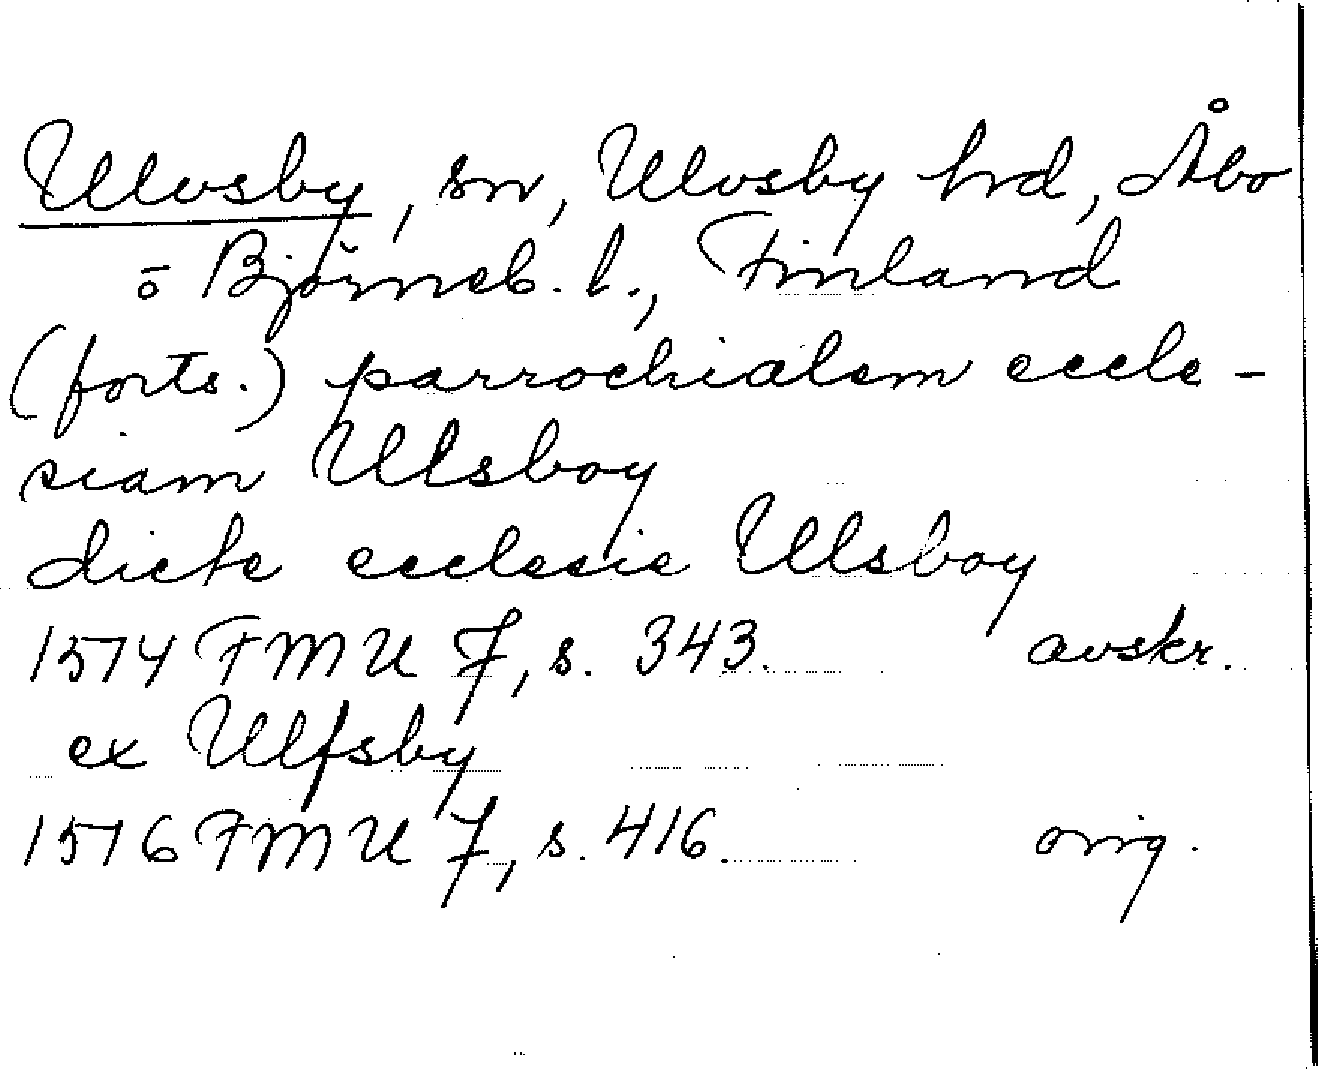 Ulvsby, sn, Ulvsby hrd, Åbo
o Björneb. l., Finland
(forts.) parrochialem eccle-
siam Ulsboy
dicte ecclesie Ulsboy
1574 FMU 7, s. 343. avskr.
ex Ulfsby
1576 FMU 7, s. 416. orig.